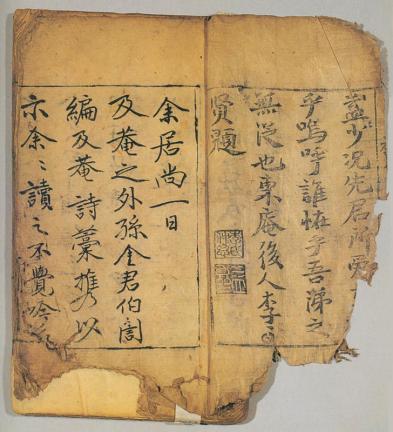 蓋少况先君所愛
乎嗚呼誰怪乎吾涕之
無從也東庵後人李
賢題
余居尚一日
及菴之外孫金君伯誾
編及菴詩藁携以
示余〻讀之不覺吟